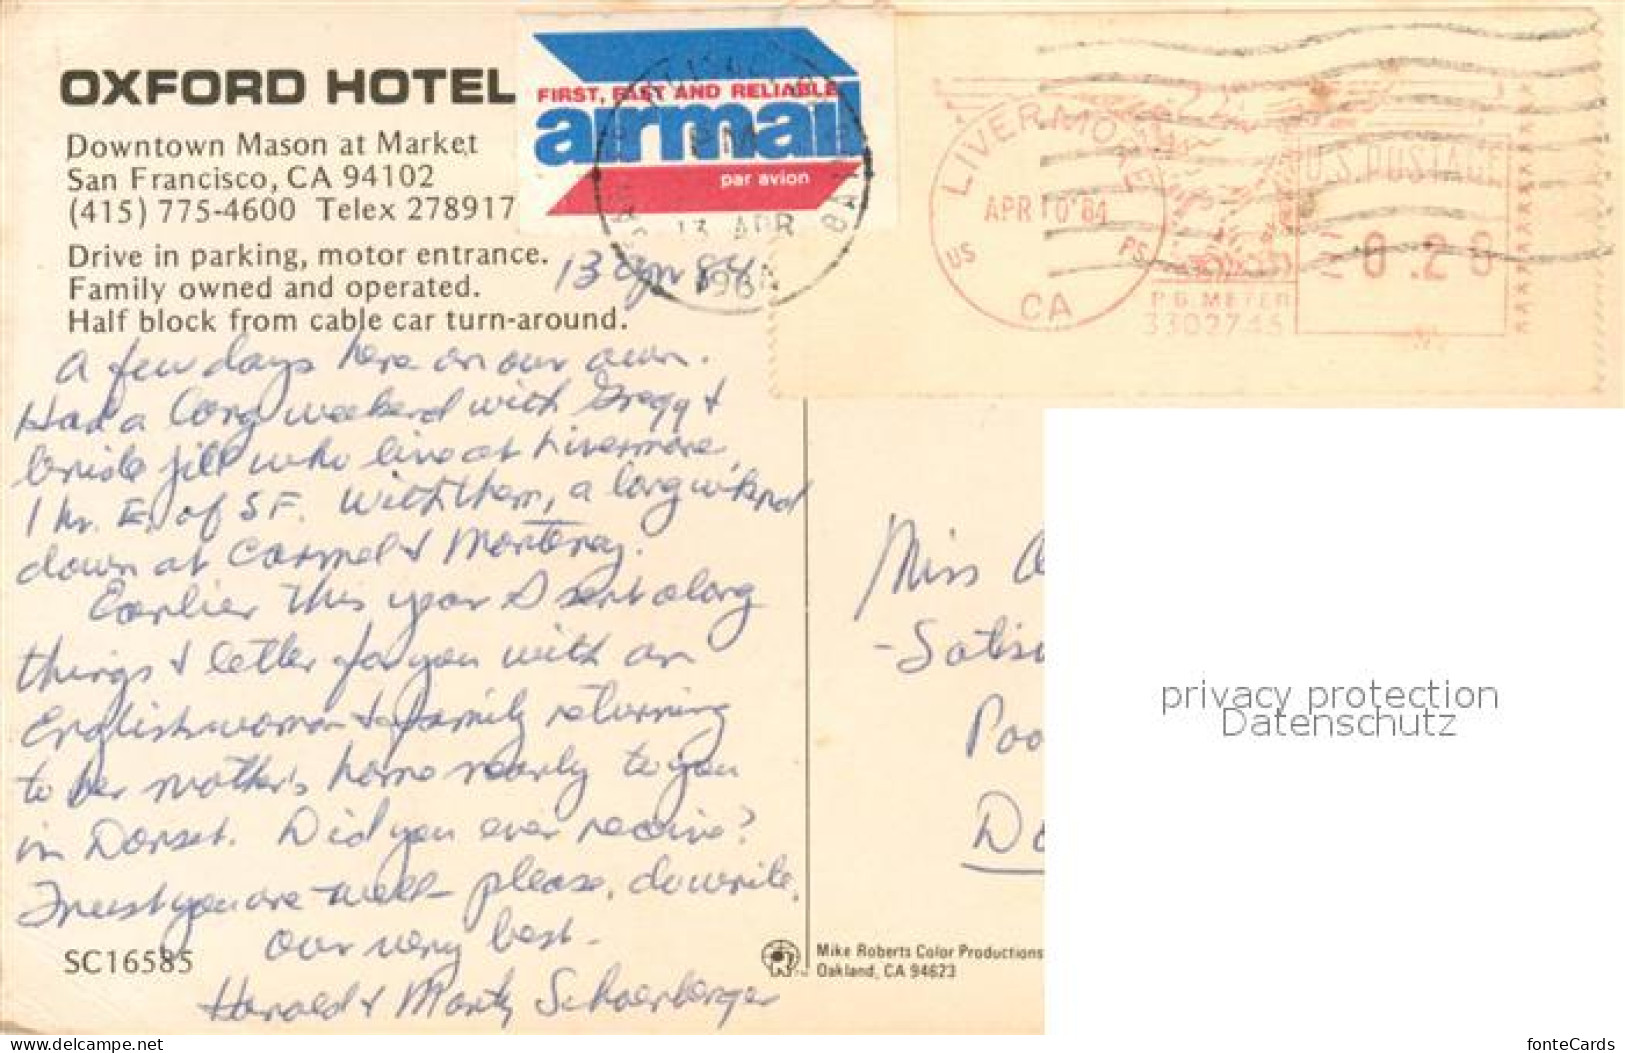 OXFORD HOTEL
Downtown Mason at Market
San Francisco, CA 94102
(415) 775-4600 Telex 278917
Drive in parking, motor entrance.
Family owned and operated.
Half block from cable car turn-around.
FIRST, FAST AND RELIABLE
airmail
par avion
PM
13 APR
1984
LIVERMORE
APR 10 '84
US PS
CA
P.B. METER
3302745
U.S. POSTAGE
0.28
13 Apr 84
A few days here on our own.
Had a long weekend with Gregg &
bride Jill who live at Livermore,
1 hr. E. of SF. With them, a long w'kend
down at Carmel & Monterey.
Earlier this year I sent along
things & letter for you with an
Englishwoman & family returning
to her mother's home nearly to you
in Dorset. Did you ever receive?
Trust you are well - please, do write.
Our very best -
Harold & Marty Schaerberger
SC16585
Mike Roberts Color Productions
Oakland, CA 94623
Miss
Poo
Do
privacy protection
Datenschutz
delcampe.net
fonteCards